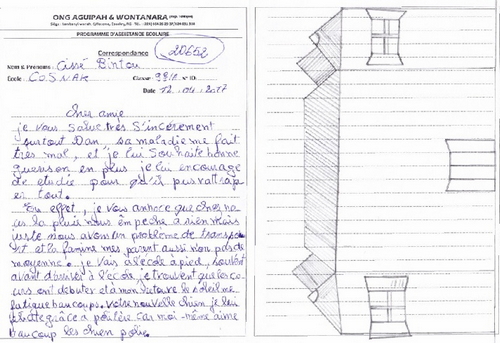 ONG AGUIPAH & WONTANARA
PROGRAMME D'ASSISTANCE SCOLAIRE
Correspondance
20652
Nom & Prénoms : Cissé Bintou
Ecole COSNAK Classe: N° ID:
Date 12. 04. 2017
Cher amie
je vous salue très Sincèrement
surtout Dan sa maladie me fait
très mal, et je lui souhaite bonne
guerson en plus je lui encourage
de etudié pour qu'il puis rattrap
en tout.
En effet, je vous annoce que ches no
us la pluie nous empeche a rien mais
juste nous avons en problème de transpo
rt et la famine mes parent aussi non pas de
moyenne. je vais à l'ecole à pied, souvent
avant d'arriver à l'école, je trouvent que les co
urs ont débuter et à mon retoure le soleil me
fatigue beaucoups. Votre nouvelle chien je lui
car moi-même aime
beaucoup les chien